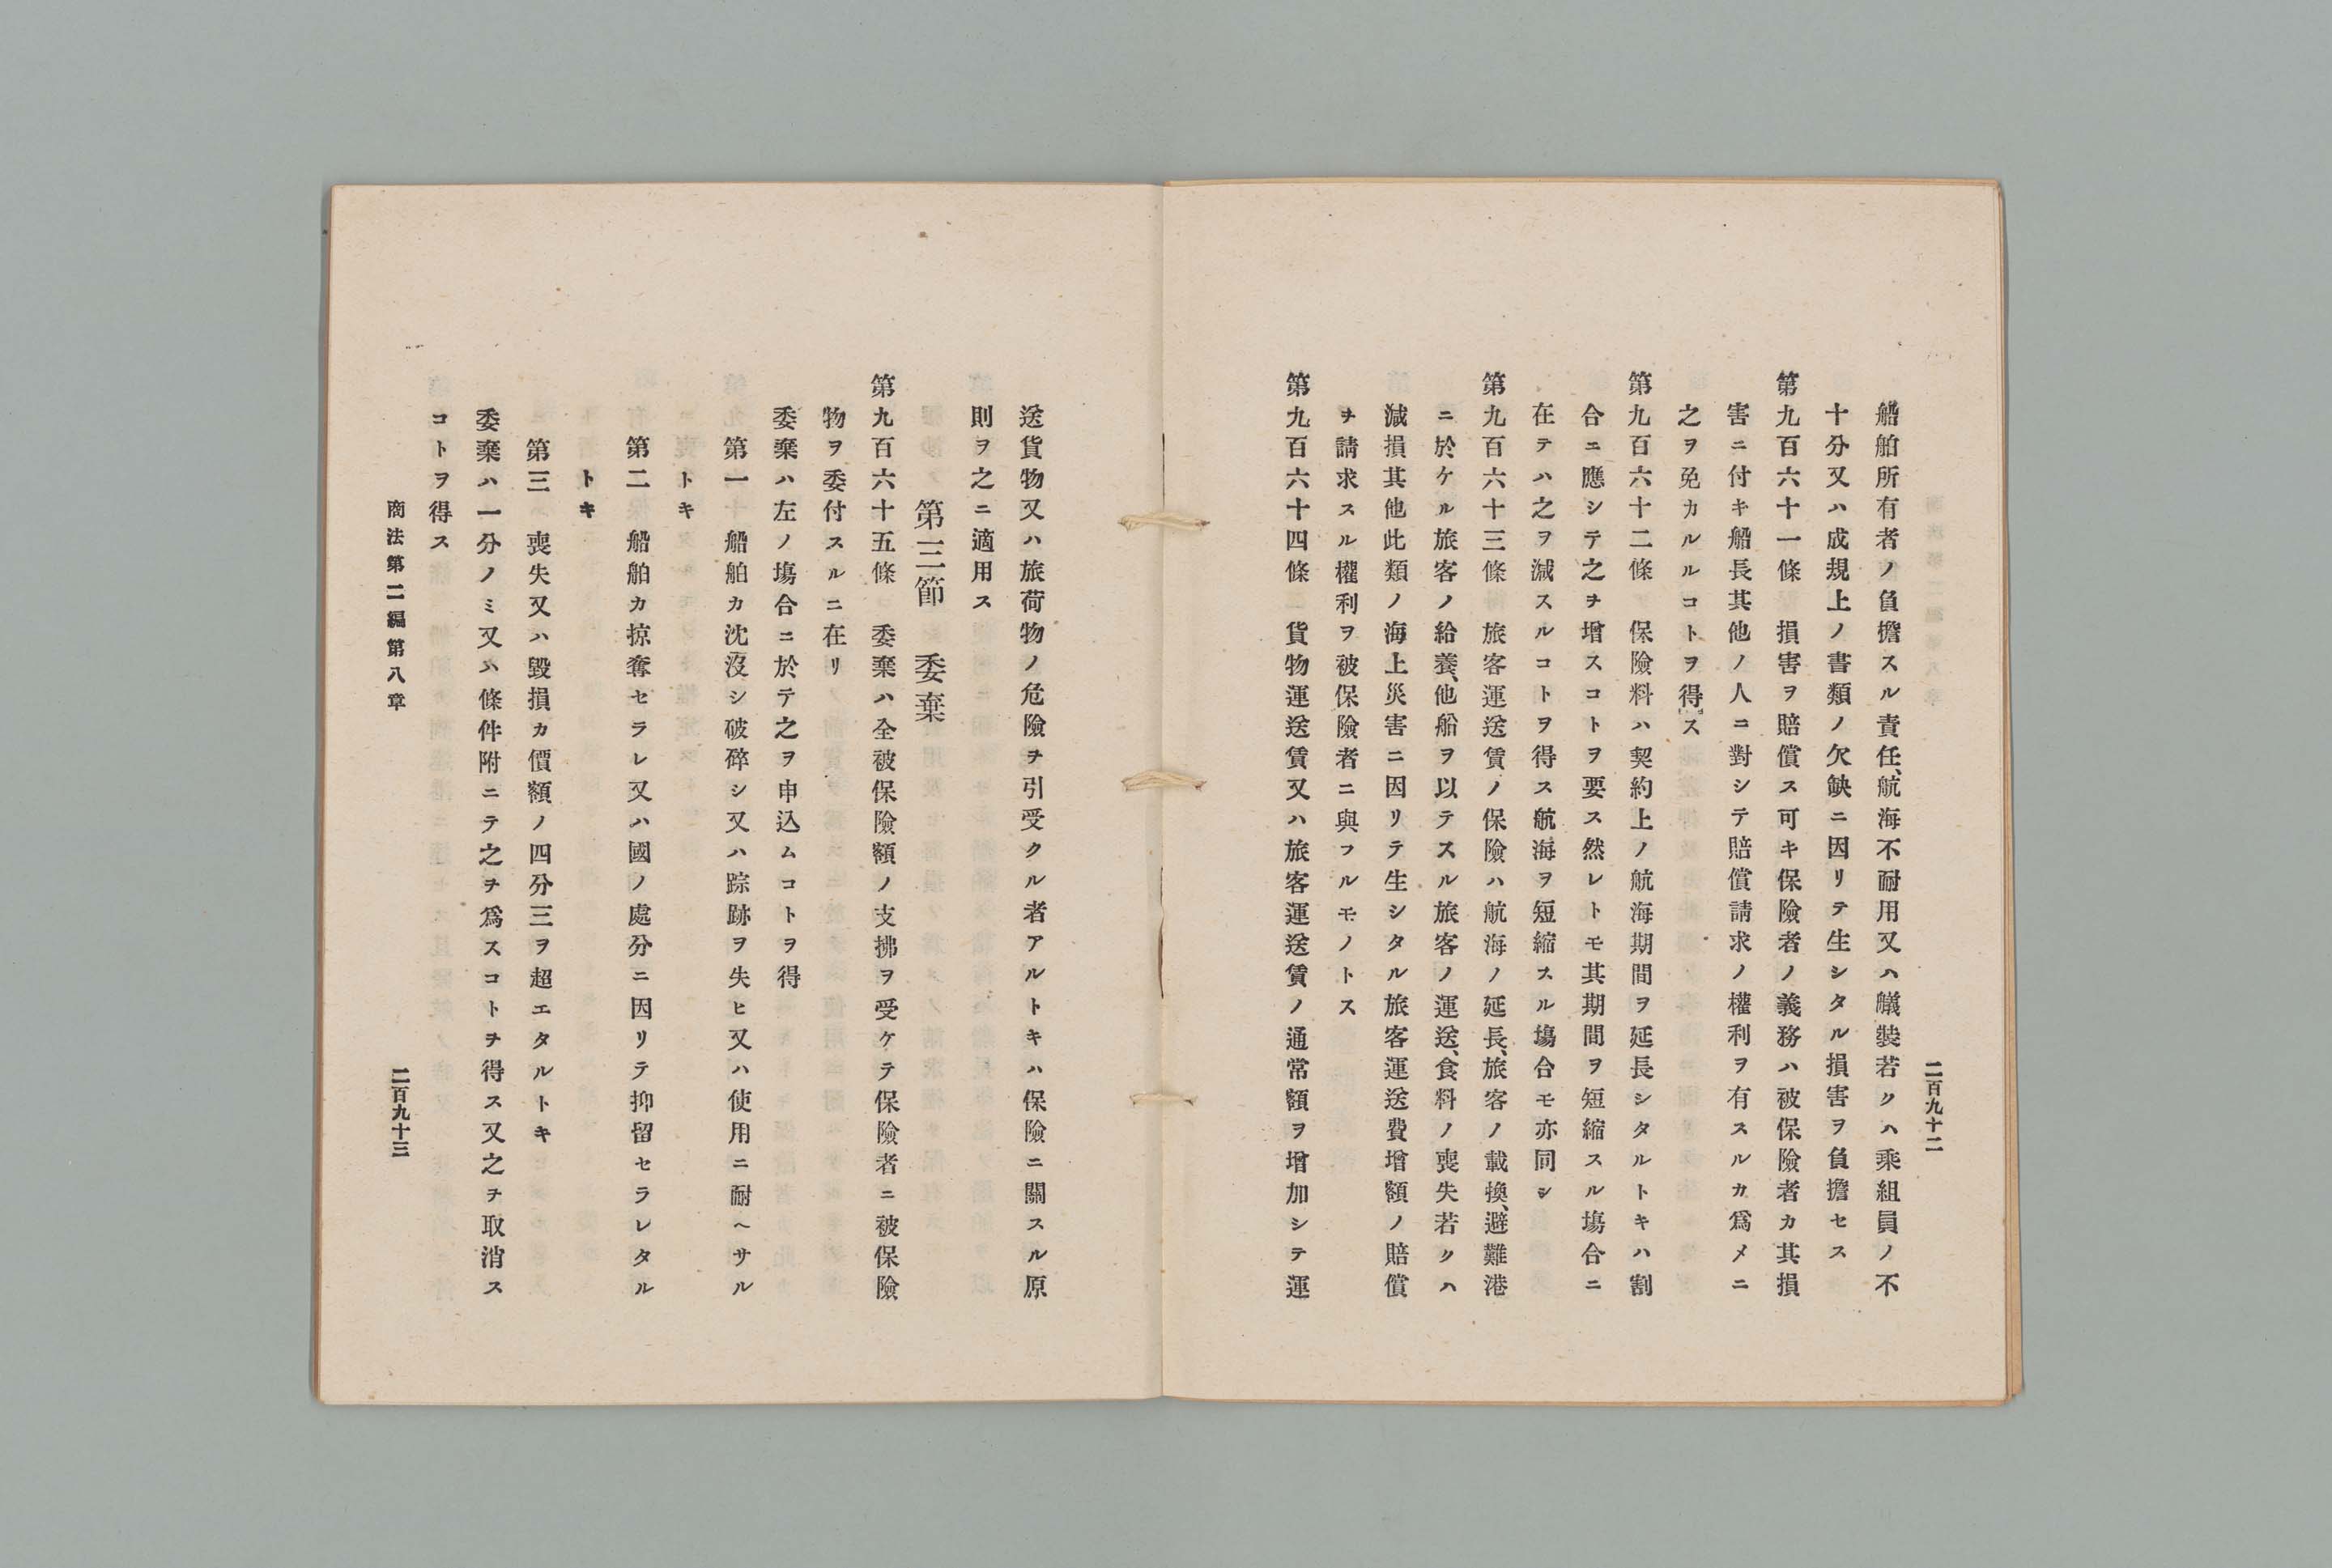 二百九十二
船舶所有者ノ負擔スル責任、航海不耐用又ハ艤裝若クハ乘組員ノ不
十分又ハ成規上ノ書類ノ欠缺ニ因リテ生シタル損害ヲ負擔セス
第九百六十一條　損害ヲ賠償ス可キ保險者ノ義務ハ被保險者カ其損
害ニ付キ船長其他ノ人ニ對シテ賠償請求ノ權利ヲ有スルカ爲メニ
之ヲ免カルルコトヲ得ス
第九百六十二條　保險料ハ契約上ノ航海期間ヲ延長シタルトキハ割
合ニ應シテ之ヲ增スコトヲ要ス然レトモ其期間ヲ短縮スル塲合ニ
在テハ之ヲ減スルコトヲ得ス航海ヲ短縮スル塲合モ亦同シ
第九百六十三條　旅客運送賃ノ保險ハ航海ノ延長、旅客ノ載換、避難港
ニ於ケル旅客ノ給養、他船ヲ以テスル旅客ノ運送、食料ノ喪失若クハ
減損其他此類ノ海上災害ニ因リテ生シタル旅客運送費增額ノ賠償
ヲ請求スル權利ヲ被保險者ニ與フルモノトス
第九百六十四條　貨物運送賃又ハ旅客運送賃ノ通常額ヲ增加シテ運
送貨物又ハ旅荷物ノ危險ヲ引受クル者アルトキハ保險ニ關スル原
則ヲ之ニ適用ス
第三節　委棄
第九百六十五條　委棄ハ全被保險額ノ支拂ヲ受ケテ保險者ニ被保險
物ヲ委付スルニ在リ
委棄ハ左ノ塲合ニ於テ之ヲ申込ムコトヲ得
第一　船舶カ沈沒シ破碎シ又ハ踪跡ヲ失ヒ又ハ使用ニ耐ヘサル
トキ
第二　船舶カ掠奪セラレ又ハ國ノ處分ニ因リテ抑留セラレタル
トキ
第三　喪失又ハ毀損カ價額ノ四分三ヲ超エタルトキ
委棄ハ一分ノミ又ハ條件附ニテ之ヲ爲スコトヲ得ス又之ヲ取消ス
コトヲ得ス
商法第二編第八章
二百九十三